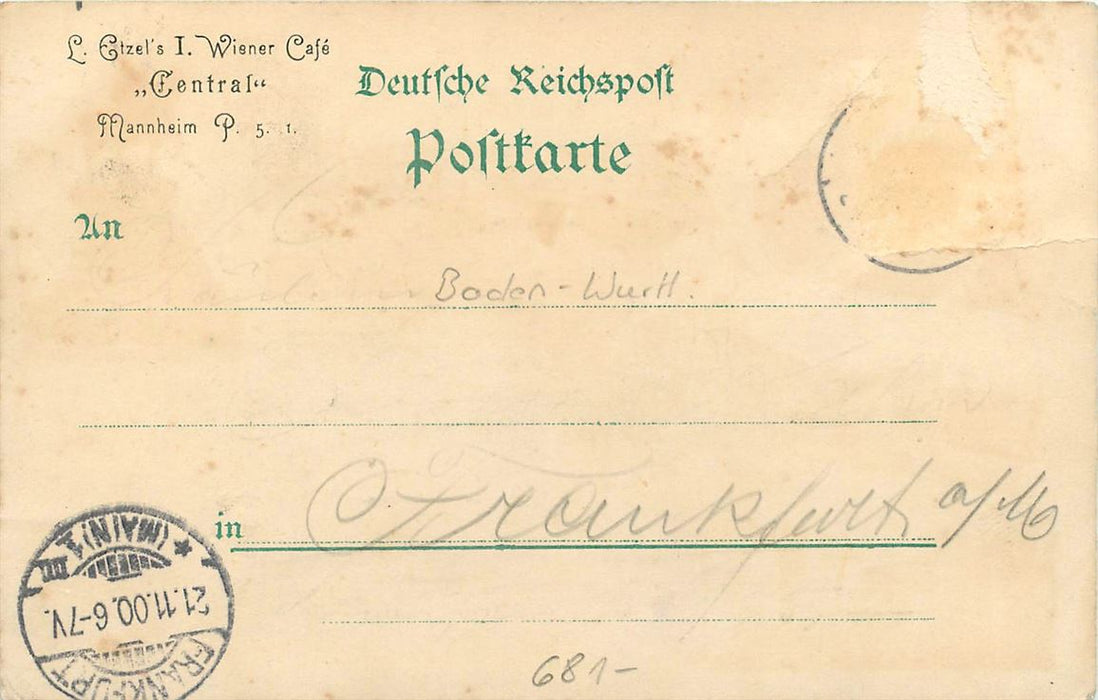 L. Etzel's I. Wiener Café
„Central“
Mannheim P. 5. 1.
Deutsche Reichspost
Postkarte
An
Baden-Wuertt.
in Frankfurt a/M
FRANKFURT (MAIN) 1
21.11.00.6-7V.
III.
681-